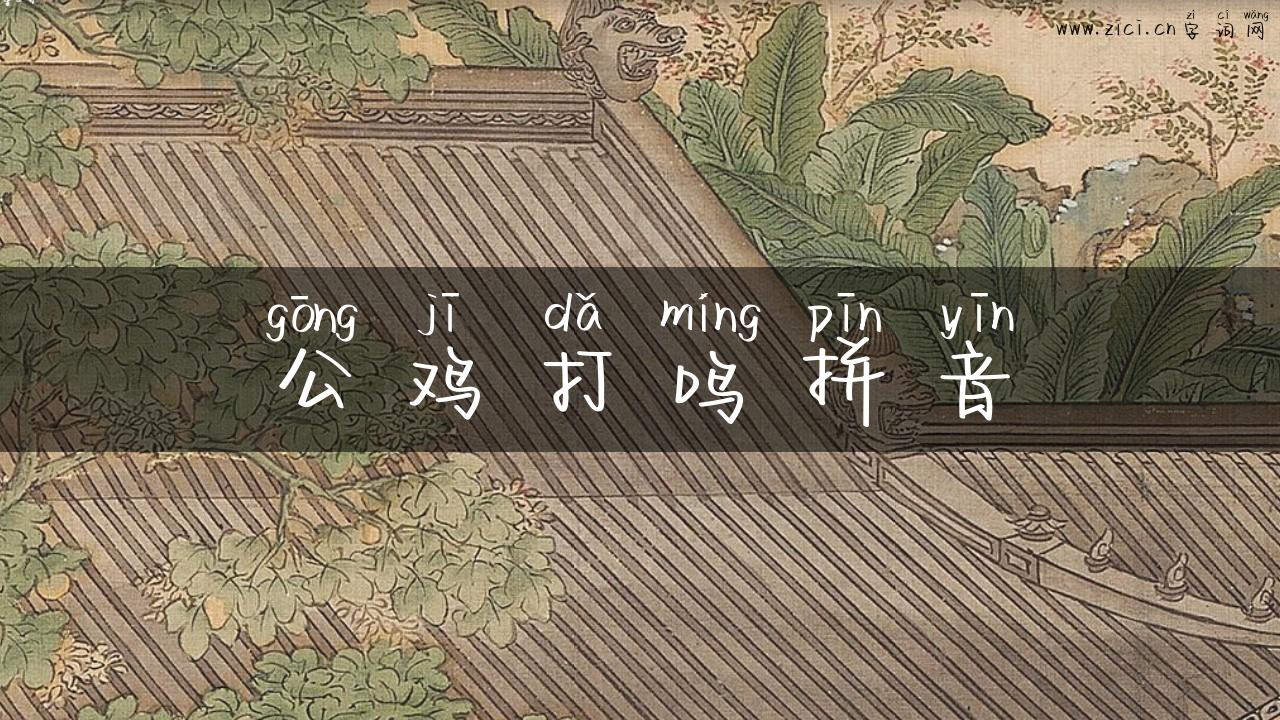 zì cí wǎng
www.zici.cn 字词网
gōng jī dǎ míng pīn yīn
公鸡打鸣拼音